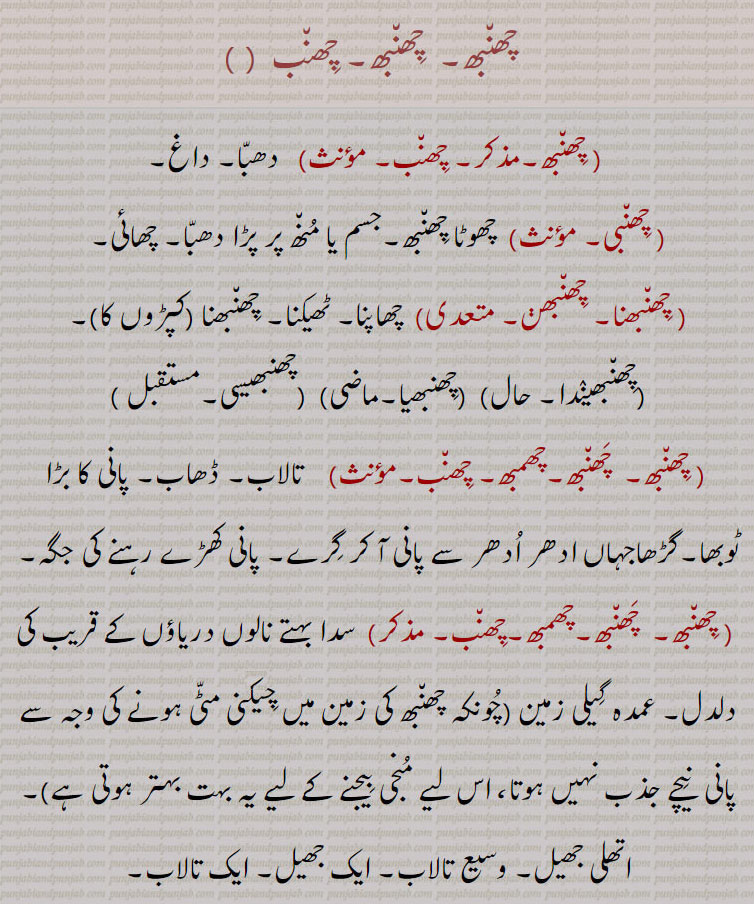 چھنّبھ۔ چِھنّبھ۔ چِھنّب ( )
(چِھنّبھ۔مذکر۔ چِھنّب۔ مؤنث) دھبّا۔ داغ۔
(چِھنّبی۔ مؤنث) چھوٹا چِھنّبھ۔جسم یا مُنّھ پر پڑا دھبّا۔ چھائی۔
(چِھنّبھنا۔ چِھنّبھݨ۔ متعدی) چھاپنا۔ ٹھیکنا۔ چِھنّبھنا (کپڑوں کا)۔
(چِھنّبھیندا۔ حال) (چِھنبھیا۔ماضی) (چھنبھیسی۔مستقبل )
(چِھنّبھ۔ چَھنّبھ۔ چھمبھ۔ چِھنّب۔مؤنث) تالاب۔ ڈھاب۔ پانی کا بڑا
ٹوبھا۔گڑھاجہاں ادھر اُدھر سے پانی آ کر گِرے۔ پانی کھڑے رہنے کی جگہ۔
(چِھنّبھ۔ چَھنّبھ۔ چھمبھ۔چِھنّب۔ مذکر) سدا بہتے نالوں دریاؤں کے قریب کی
دلدل۔ عمدہ گِیلی زمین (چُونکہ چھنّبھ کی زمین میں چِیکنی مٹّی ہونے کی وجہ سے
پانی نیچے جذب نہیں ہوتا، اس لیے مُنجی بِیجنے کے لیے یہ بہت بہتر ہوتی ہے)۔
اتھلی جھیل۔ وسیع تالاب۔ ایک جھیل۔ ایک تالاب۔